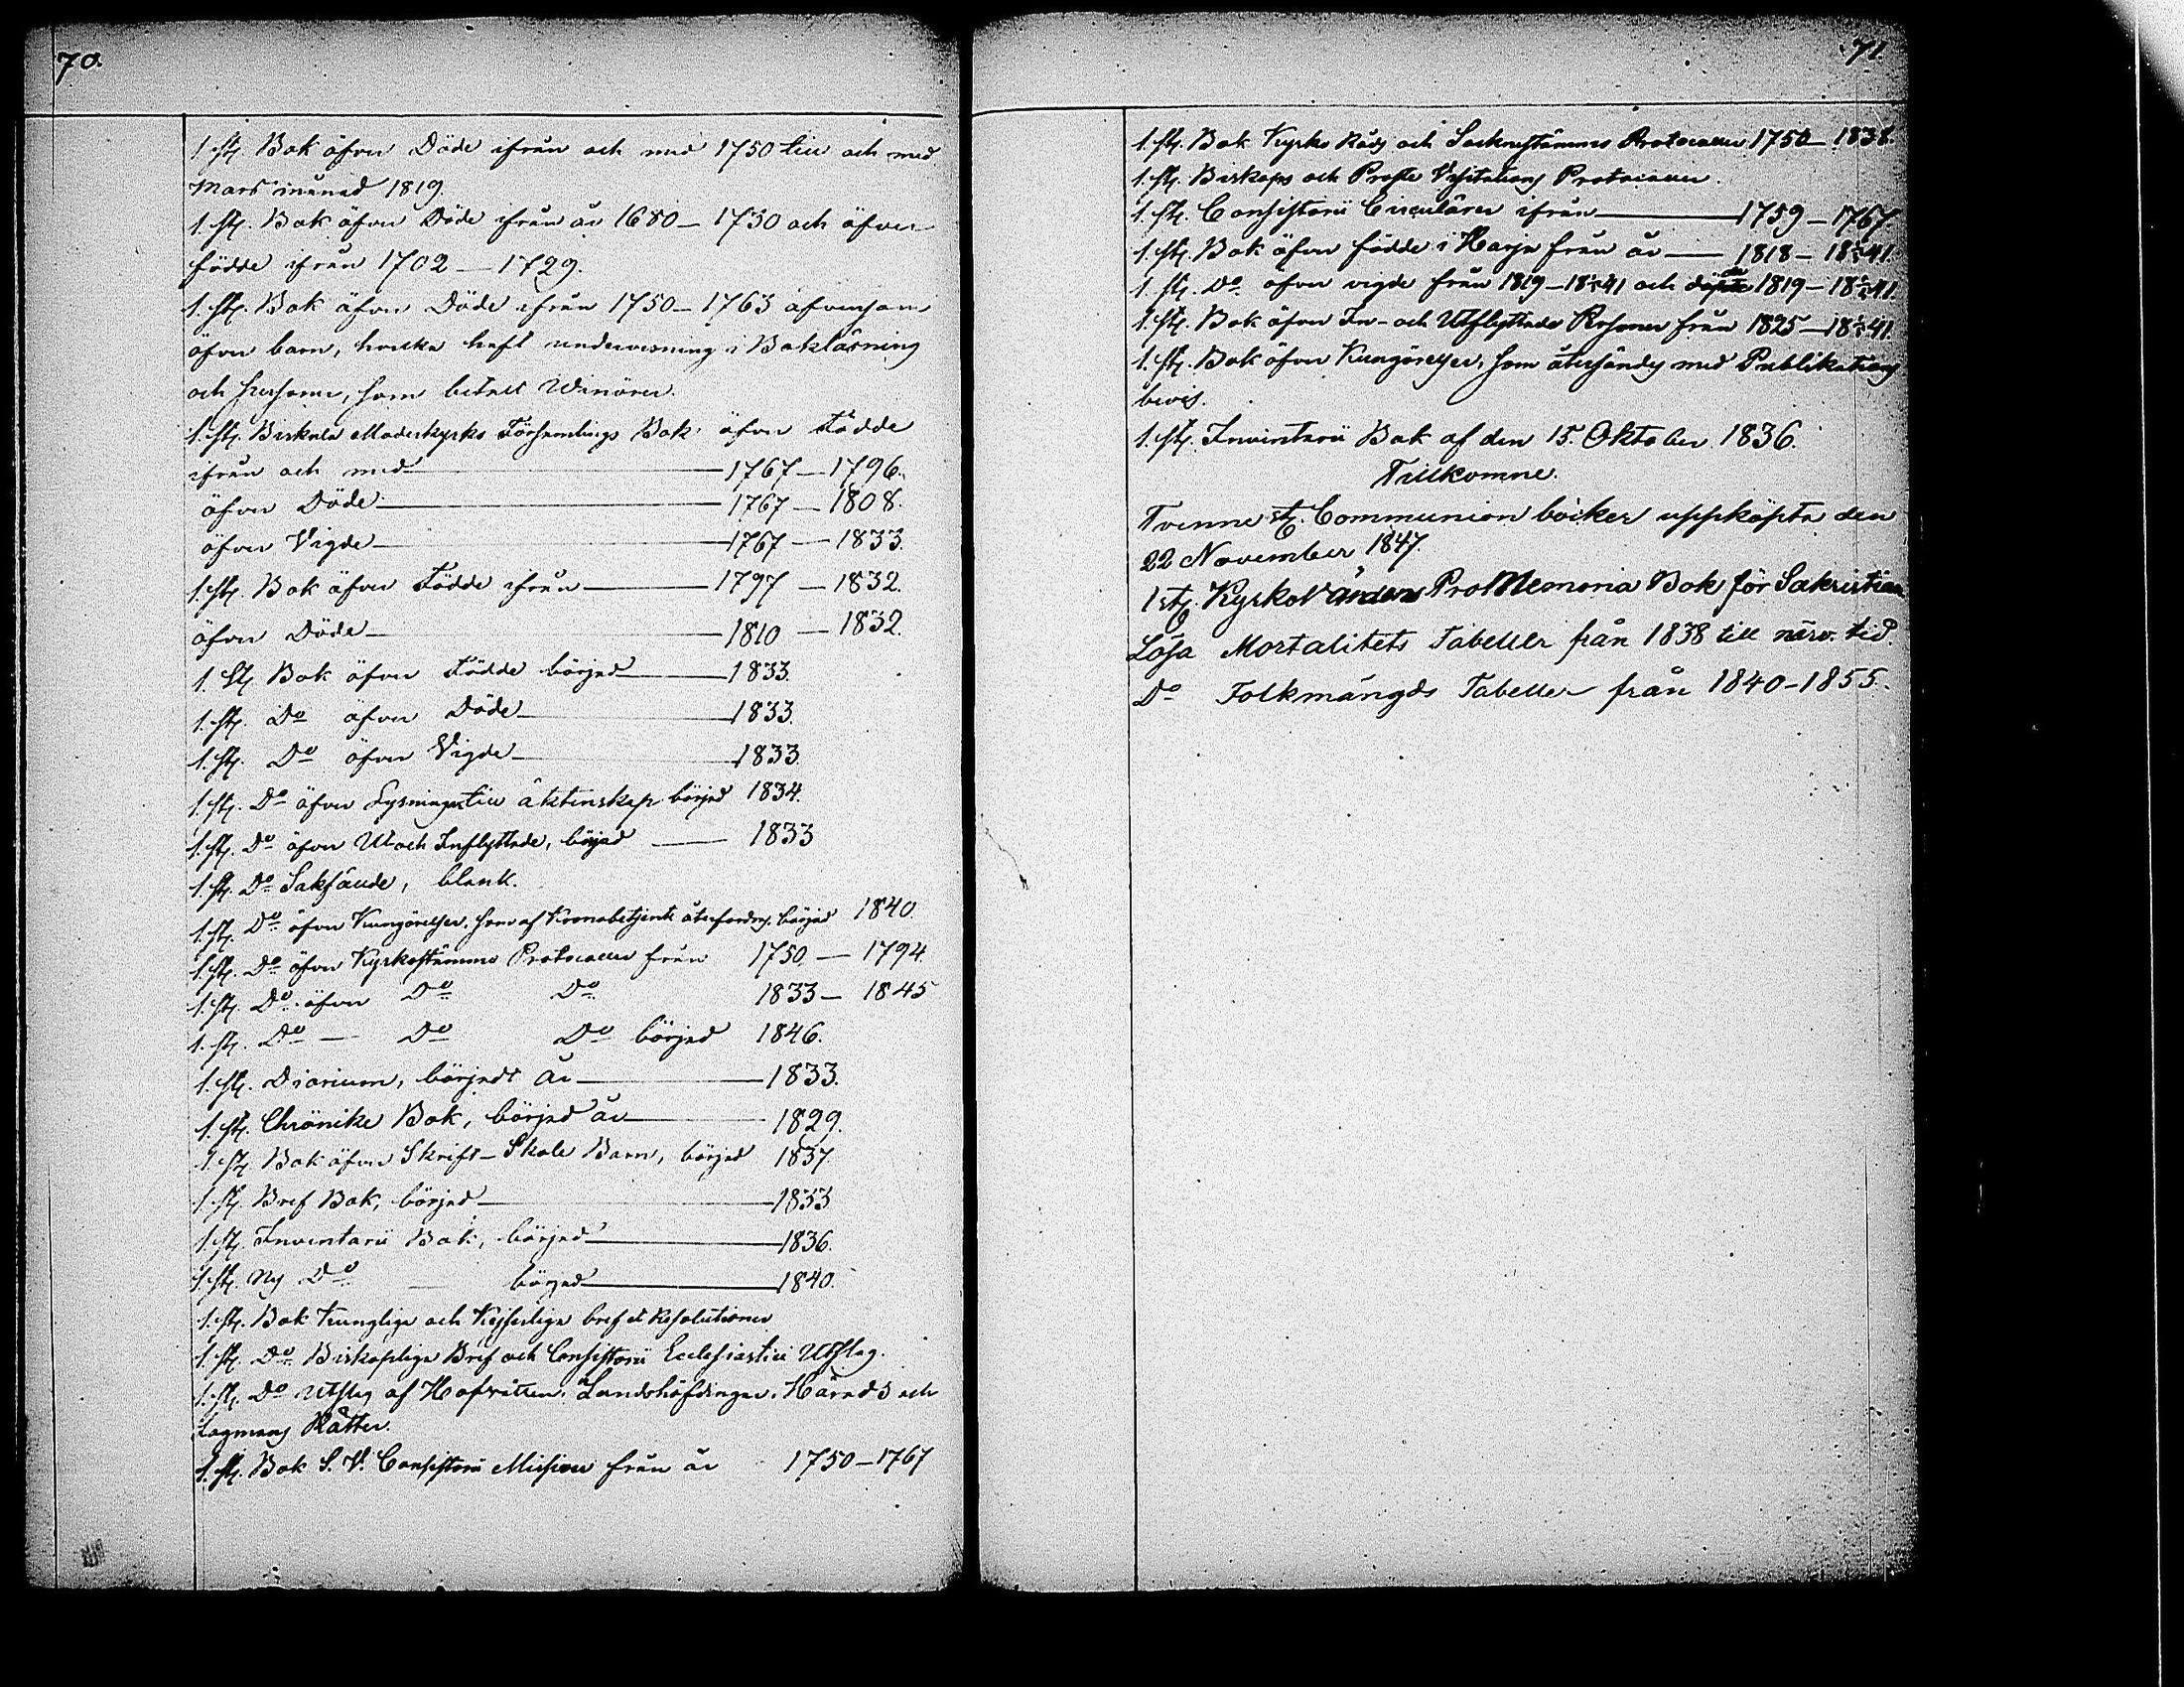 70.
1. st. Bok öfver Döde ifrån och med 1750 till och med
Mars månad 1819.
1. st. Bok öfver Döde ifrån år 1680 — 1730 och öfver
födde ifrån 1702 — 1729.
1. st. Bok öfver Döde ifrån 1750 — 1763 äfvensom
öfver barn, hvilka haft undervisning i Bokläsning
och personer, som betalt
1. st. Birkala Moderkyrko Församlings Bok öfver Födde
ifrån och med — 1767 — 1796.
öfver Döde — 1767 — 1808.
öfver Vigde — 1767 — 1833.
1. st. Bok öfver Födde ifrån — 1797 — 1832.
öfver Döde — 1810 — 1832.
1. st. Bok öfver Födde börjad — 1833.
1. st. Do öfver Döde — 1833.
1. st. Do öfver Vigde — 1833.
1. st. Do öfver Lysningar till äktenskap börjad 1834.
1. st. Do öfver Ut och Inflyttade, börjad — 1833
1. st. Do Saköande, blank.
1. st. Do öfver Kungörelser, som af Kronobetjente återfordras, börjad 1840.
1. st. Do öfver Kyrkostämmo Protocoller från 1750 — 1794.
1. st. Do öfver Do Do 1833 — 1845
1. st. Do — Do Do börjad 1846.
1. st. Diarium, börjadt år — 1833.
1. st. Chrönike Bok, börjad år — 1829.
1. st. Bok öfver Skrift-Skole Barn, börjad 1837.
1. st. Bref Bok, börjad — 1833
1. st. Inventarii Bok, börjad — 1836.
1. st. Ny Do — börjad — 1840.
1. st. Bok Kunglige och Kejserlige bref et Resolutioner
1. st. Do Biskoplige Bref och Consistorii Ecclesiastici Utslag.
1. st. Do Utslag af Hofrätten, Landshöfdingar, Härads och
Lagmans Rätter.
1. st. Bok S. V. Consistorii Missiver från år 1750 — 1767
71.
1. st. Bok Kyrko Råds och Sockenstämmo Protocoller 1750 — 1838.
1. st. Biskops och Probste Visitations Protocoller.
1. st. Consistorii Circulärer ifrån — 1759 — 1767.
1. st. Bok öfver födde i Harju från år — 1818 — 18 41.
1. st. Do öfver vigde från 1819 — 18 41 och döde 1819 — 18 41.
1. st. Bok öfver In- och Utflyttade Personer från 1825 — 18 41.
1. st. Bok öfver Kungörelser, som återsändes med Publikations
bevis.
1. st. Inventarii Bok af den 15. Oktober 1836.
Tillkomne.
Tvenne st. Communion böcker uppköpte den
22 November 1847.
1 st. Kyrkovärdens Pro Memoria Bok för Sakristian
Lösa Mortalitets Tabeller från 1838 till närv. tid.
Do Folkmängds Tabeller från 1840 - 1855.